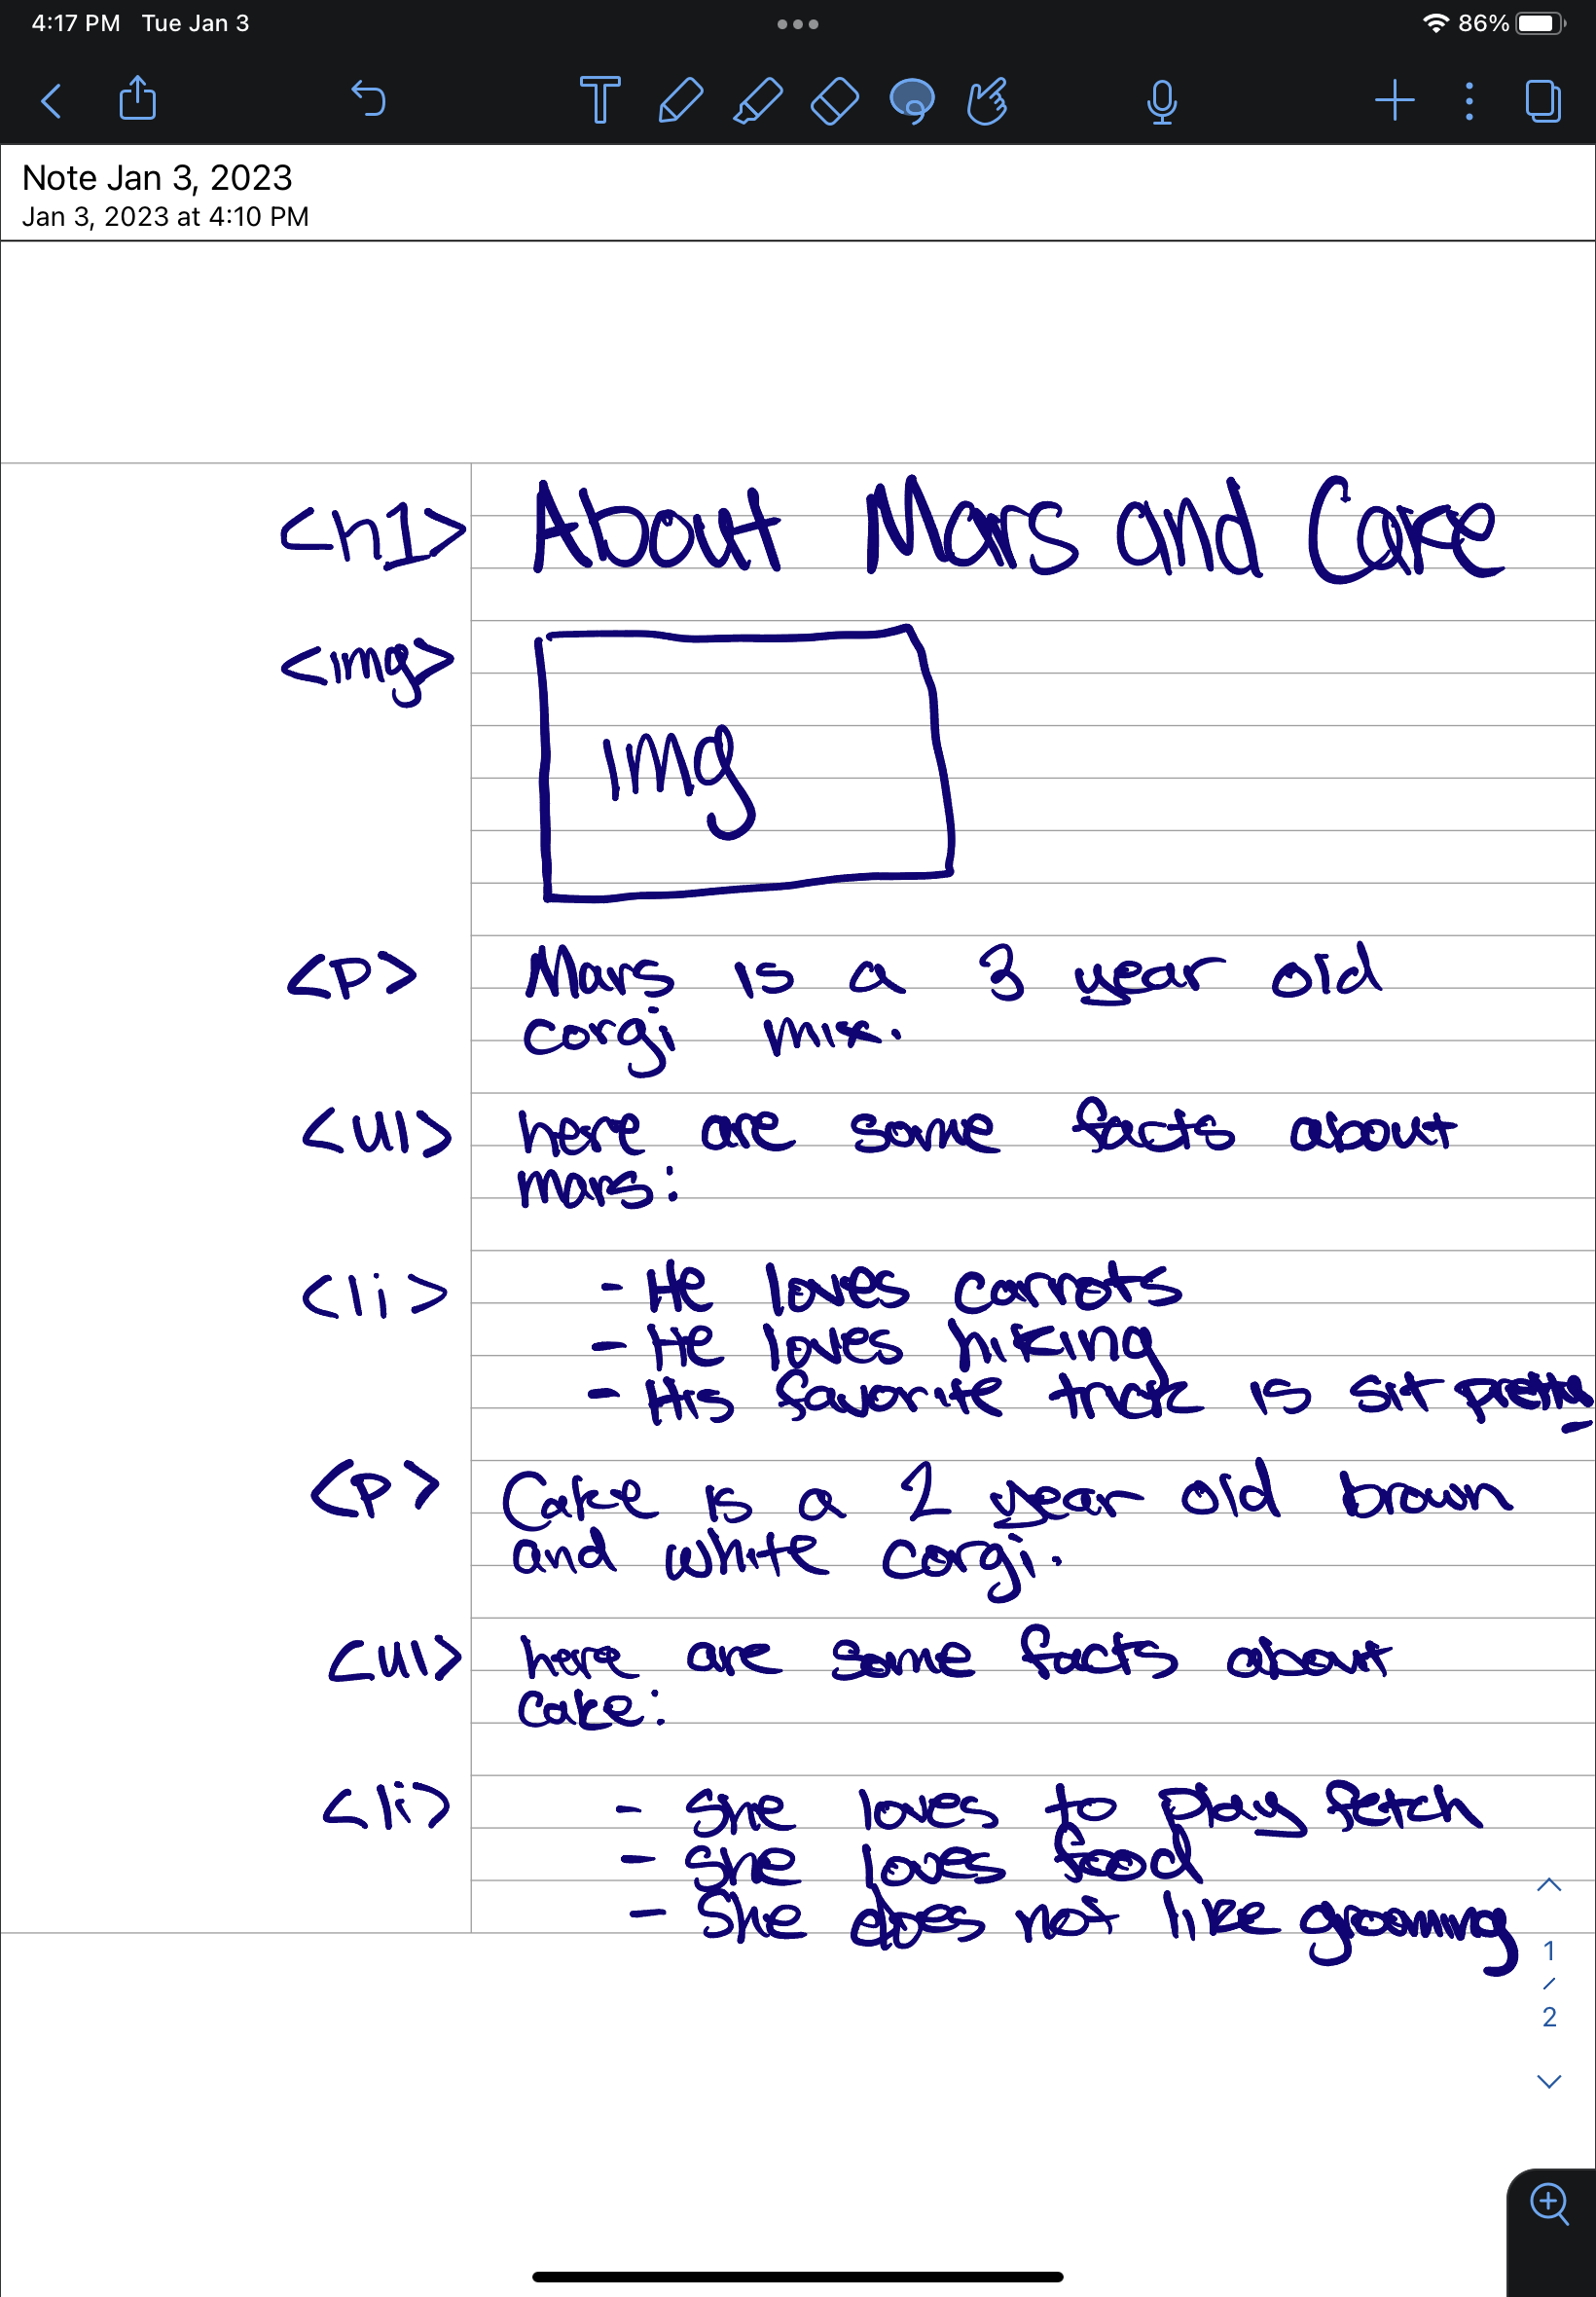 4:17 PM Tue Jan 3
86%
Note Jan 3, 2023
Jan 3, 2023 at 4:10 PM
<h1> About Mars and Cake
<img>
img
<p> Mars is a 3 year old
corgi mix.
<ul> here are some facts about
mars:
<li> - He loves carrots
- He loves hiking
- His favorite trick is sit pretty
<p> Cake is a 2 year old brown
and white corgi.
<ul> here are some facts about
cake:
<li> - She loves to play fetch
- She loves food
- She does not like grooming
1
/
2